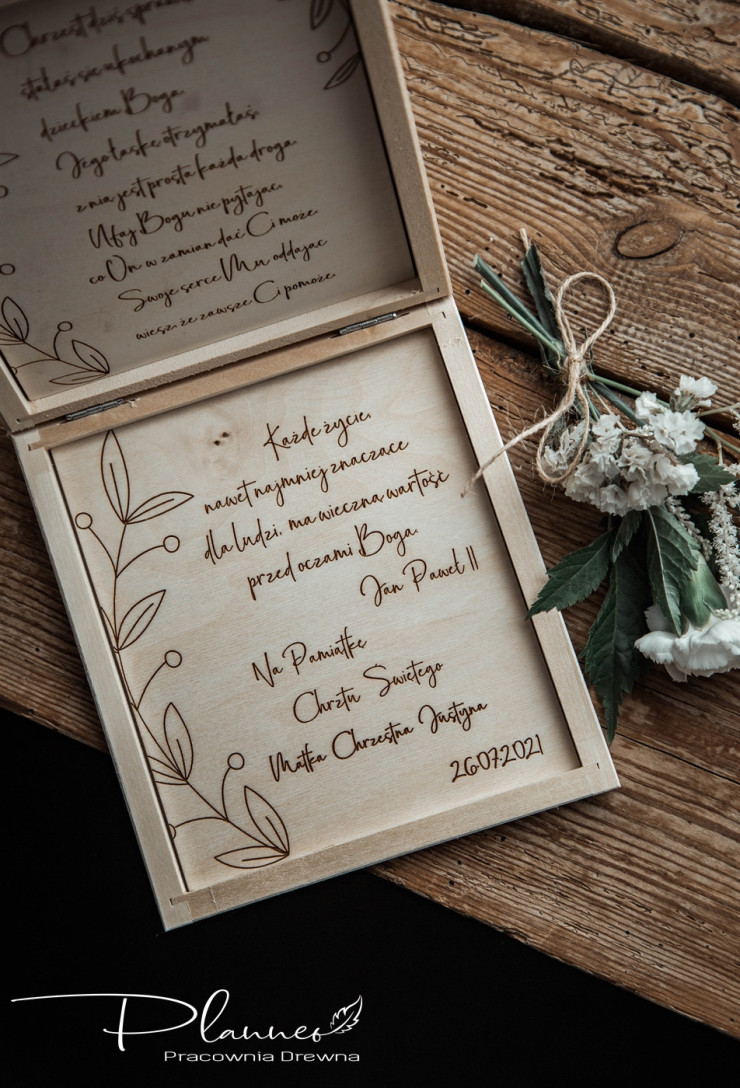 Chrzest dziś sprawił
stałaś się ukochanym
dzieckiem Boga.
Jego łaskę otrzymałaś,
z nią jest prosta każda droga.
Ufaj Bogu nie pytając,
co On w zamian dać Ci może.
Swoje serce Mu oddając
wiesz, że zawsze Ci pomoże.
Każde życie,
nawet najmniej znaczące
dla ludzi, ma wieczną wartość
przed oczami Boga.
Jan Paweł II
Na Pamiątkę
Chrztu Świętego
Matka Chrzestna Justyna
26.07.2021
Planneo
Pracownia Drewna